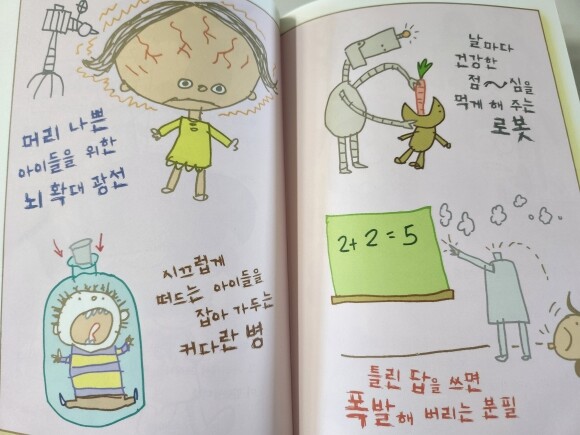 머리 나쁜
아이들을 위한
뇌 확대 광전
시끄럽게
떠드는 아이들을
잡아 가두는
커다란 병
날마다
건강한
점~심을
먹게 해 주는
로봇
2+2=5
틀린 답을 쓰면
폭발해 버리는 분필